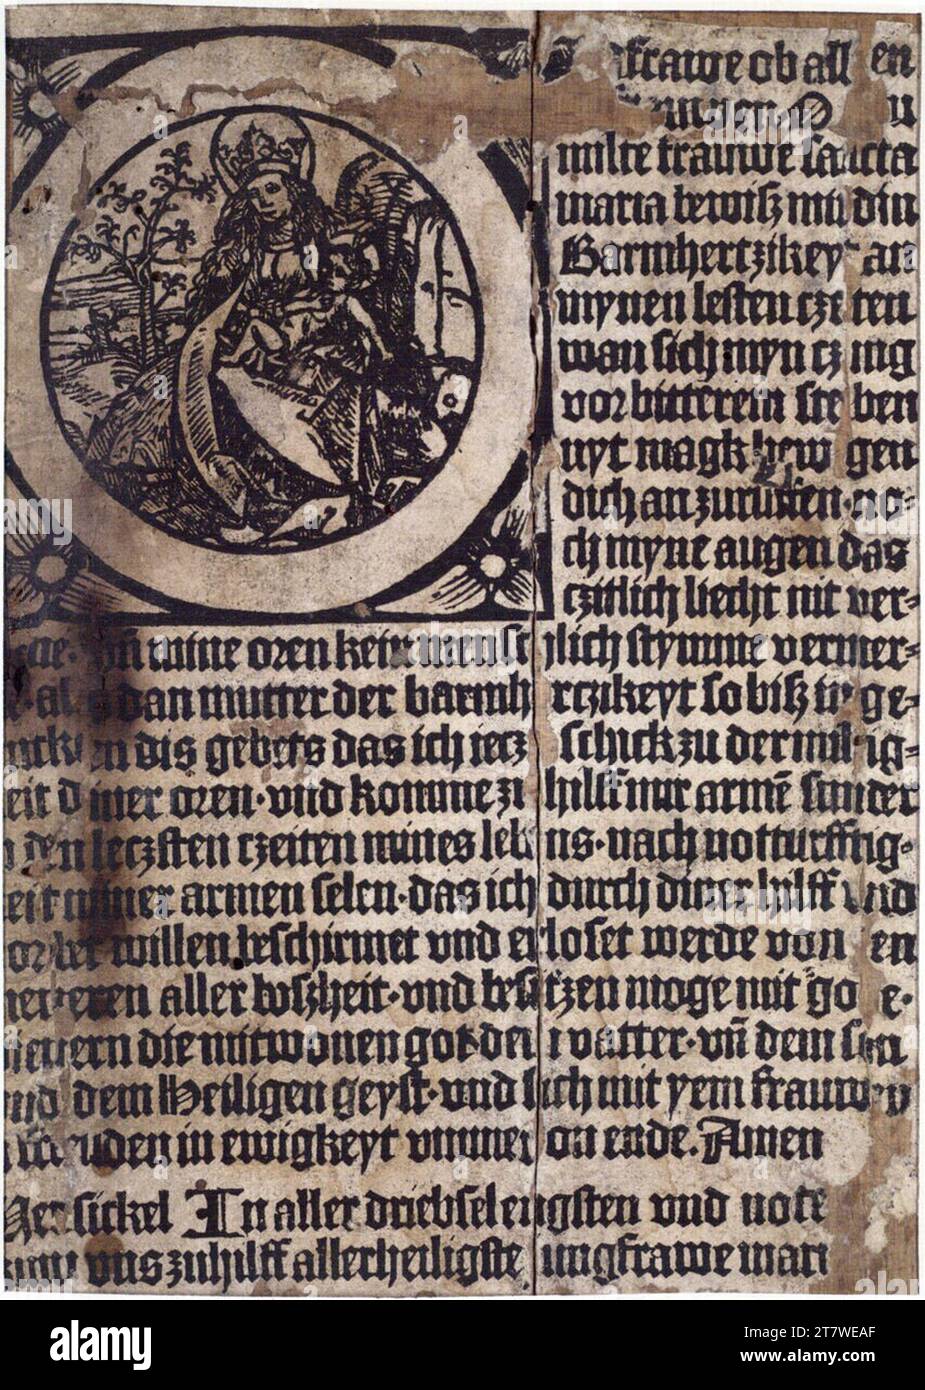 frawe ob all en
milte frauwe sancta
maria bewisz mir din
Barmhertzikeyt an
mynen lesten czeiten
wan sich myn czung
vor bitterem sterben
nyt magk bewegen
dich an zuruffen· no-
ch myne augen das
czitlich liecht nit ver-
vn̄ mine oren kein menschlich stymme vermer-
dan mutter der barmherczikeyt so bisz inge-
dis gebets das ich iecz schick zu der miltig-
eit diner oren· vnd komme zu hilff mir armē sunder
den leczsten czeiten mines lebens· nach notturfftig-
eit miner armen selen· das ich durch diner hilff vnd
willen beschirmet vnd erloset werde von en
aller boszheit· vnd besitzen moge mit go e·
die mitwonen got dem vatter· vn̄ dem son
vnd dem Heiligen geyst· vnd sich mit yem frauwen
freuden in ewigkeyt vmmer on ende. Amen
Versickel In aller driebsel engsten vnd note
kum vns zuhilff allerheiligste iungfrawe mari
alamy
Image ID: 2T7WEAF
www.alamy.com